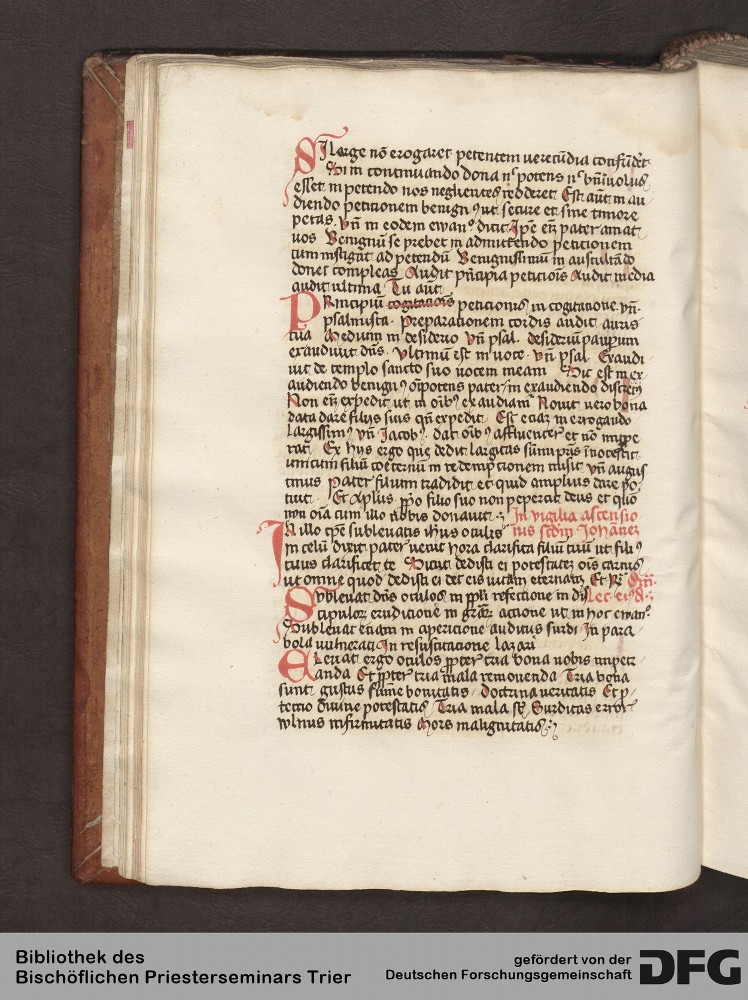 SI large nō erogaret petentem uerecūdia confūdēt
Si in continuando dona nō potens nō bn̄iuolus
esset in petendo nos negligentes redderet Est aūt in au
diendo peticionem benignꝰ ut secure et sine timore
petas. Vn̄ in eodem ewanº dicit Ipse eni pater amat
uos Benignū se prebet in admittendo peticionem
cum instigat ad petendū Benignissimū in auscultādo
donec compleas Audit prīcipia peticiōis Audit media
audit ultima Tu aūt
PRincipiū cogitatiōis peticionis in cogitatione. vn̄.
psalmista. Preparationem cordis audit auris
tua Medium in desiderio Vn̄ psal. desideriū paupum
exaudiuit dn̄s. Vltimū est in uoce. vn̄ psal. Exaudi
uit de templo sancto suo uocem meam Sic est in ex
audiendo benignꝰ oīpotens pater in exaudiendo discretꝰ
Non eni expedit ut in oībꝰ exaudiam̄ Nouit uero bona
data dare filijs suis qn̄ expedit Est eciaz in errogando
largissimꝰ vn̄ Jacobꝰ. dat oībꝰ affluenter et nō impe
rat Ex hijs ergo que dedit largitas sūmi pris īnotescit
unicum filiū coeternū in redempcionem misit vn̄ augus
tinus Pater filium tradidit et quid amplius dare po
tuit Et Aplus ꝓpo filio suo non pepercit deus et quō
non oīa cum illo nobis donauit In vigilia ascensio
IN illo tp̄e subleuatis ihūs oculis nis scdm̄ Johānez
in celū dixit pater uenit hora clarifica filiū tuū ut filiꝰ
tuus clarificet te Sicut dedisti ei potestatez oīs carnis
ut omne quod dedisti ei det eis uitam eternam Et Rꝫ
Subleuat dn̄s oculos in ppli refectione in dis Lec. eiꝰd.
cipuloꝝ erudicione in graꝝ actione ut in hoc ewanº
Subleuat etiam in apericione auditus surdi In para
bola uulnerati In resuscitacione lazari
ELeuat ergo oculos ꝓpter tria bona nobis impetr
anda Et ꝓpter tria mala remouenda Tria bona
sunt gustus sūme bonitatis Doctrina ueritatis Et ꝓ
tectio diuine potestatis Tria mala sꝫ Surditas error
wlnus infirmitatis Mors malignitatis
Bibliothek des
Bischöflichen Priesterseminars Trier
gefördert von der
Deutschen Forschungsgemeinschaft
DFG